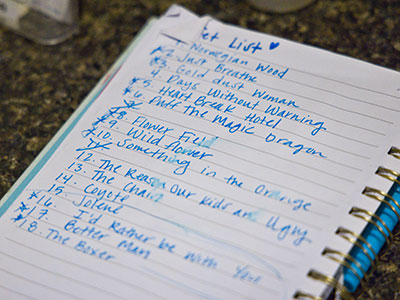 et List ♥
Norwegian Wood
*2. Just Breathe
*3. Gold dust Woman
4. Days Without Warning
*5. Heart Break Hotel
*6. Puff The Magic Dragon
*8. Flower Field
9. Wild flower
*10. Something in the Orange
12. The Reason Our Kids are Ugly
13. The Chain
14. Coyote
15. Jolene
*16. I'd Rather be with You
*17. Better Man
18. The Boxer